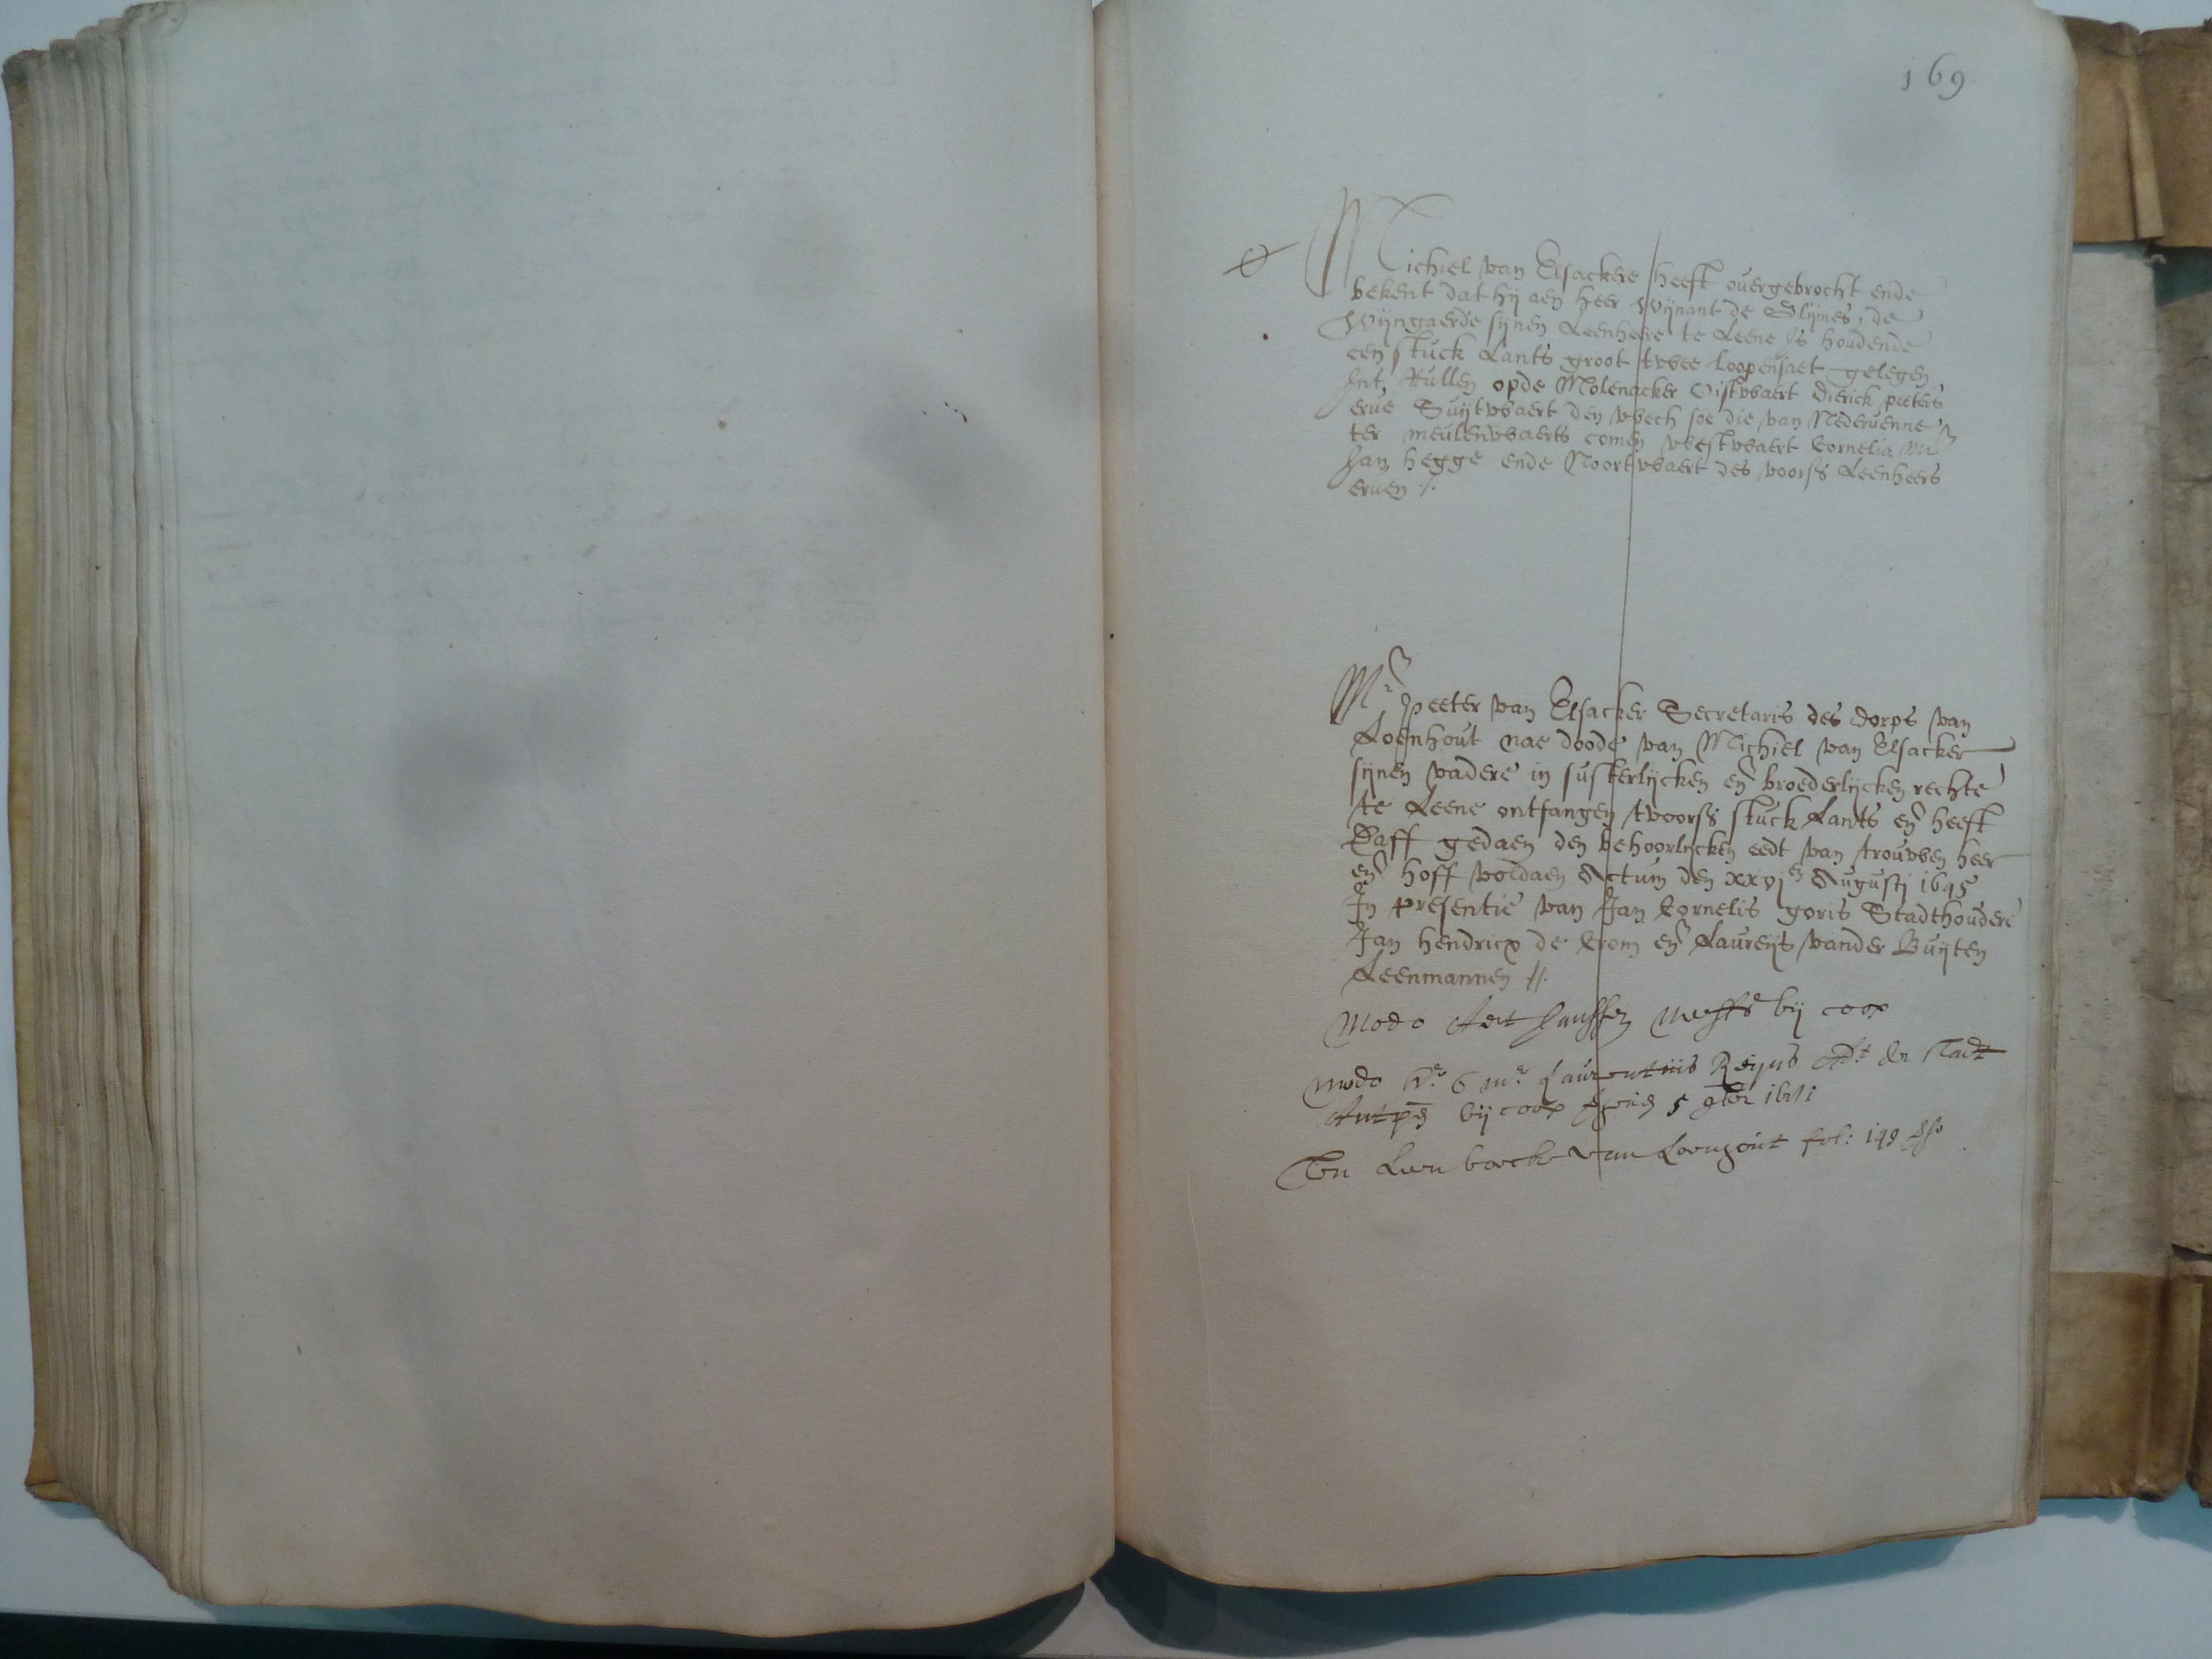 169
Michiel van Elsackere heeft overgebrocht ende
bekent dat hij aen heer Wijnant de Slijmes, de
Wijngaerde sijnen Leenheere te Leene Is houdende
een stuck Lants groot twee loopensaet gelegen
Int Rullen opde Molenacker Oistwaert Dierick peeters
erve Suijtwaert den wech soe die van Nedervenne
ter meulenwaerts comen westwaert Cornelia
Jan hegge ende Noortwaert des voors Leenheers
erven ./.
Mr peeter van Elsacker Secretaris des dorps van
Loenhout nae doode van Michiel van Elsacker
sijnen vadere in susterlijcken en broederlijcken rechte
te Leene ontfangen tvoors stuck Lants en heeft
Daaff gedaen den behoorlycken eedt van trouwen heer
en hoff voldaen Actum den xxvjen Augusti 1645
In presentie van Jan Cornelis goris Stadthoudere
Jan hendricx de Crom en Laureijs vander Buijten
Leenmannen //.
Modo Aert Janssen bij coop
modo Laurentiis Reijns de stadt
Antpn bij coop 5
Leen boeck van Loenhout fol: 198